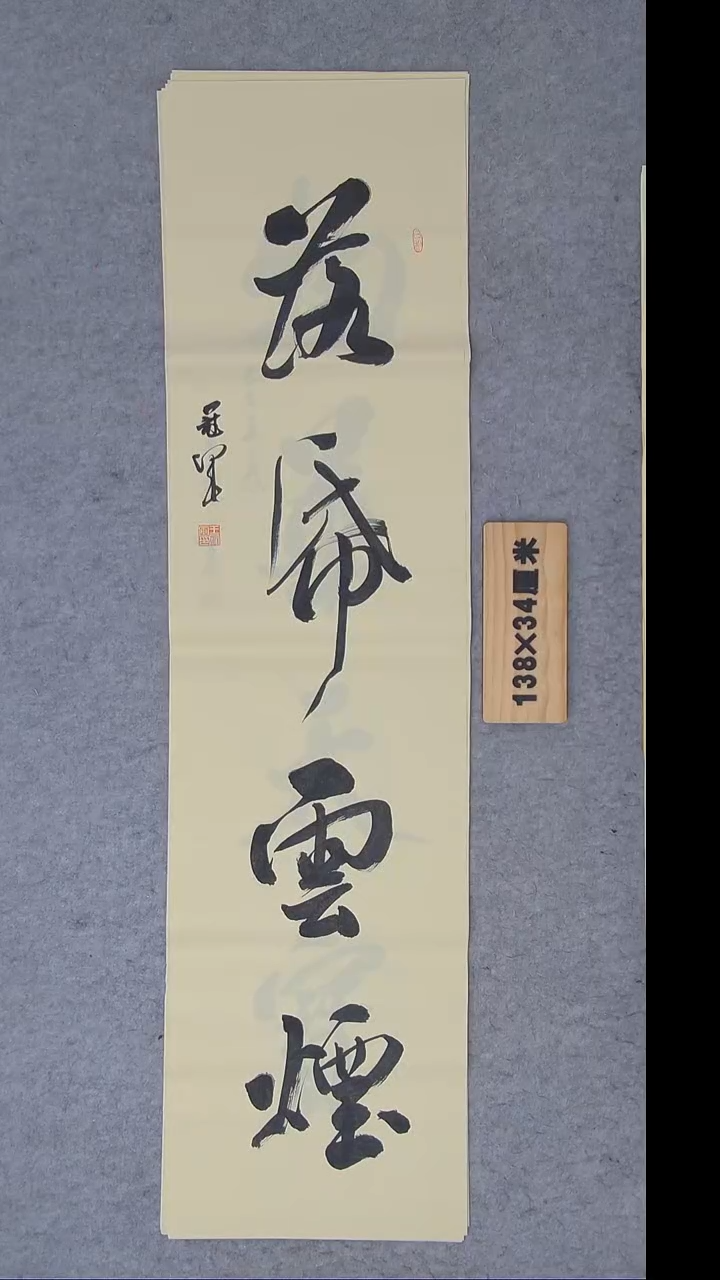 落帋雲煙
138×34厘米